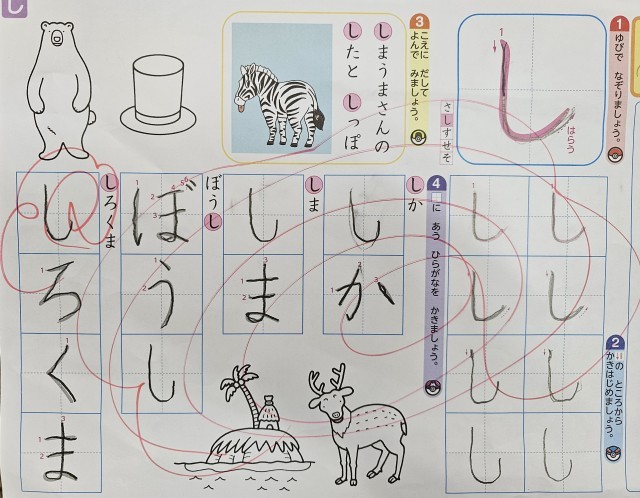 し
1
ゆびで なぞりましょう。
し
はらう
さしすせそ
2
↓の ところから
かきはじめましょう。
し
し
し
し
し
し
し
し
3
こえに だして
よんで みましょう。
しまうまさんの
したと しっぽ
4
□に あう ひらがなを かきましょう。
しか
しか
しま
しま
ぼうし
ぼうし
しろくま
しろくま